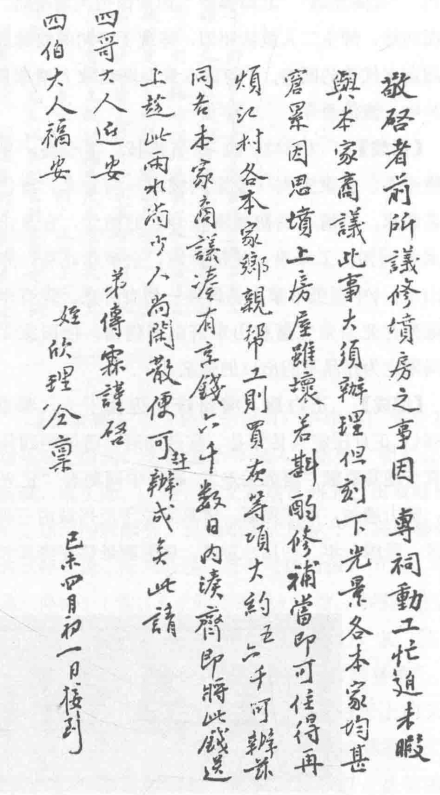 敬啓者前所議修墳房之事因　專祠動工忙迫未暇
與本家商議此事大須辦理但刻下光景各本家均甚
窘累因思墳上房屋雖壞若斟酌修補當即可住得再
煩江村各本家鄉親帮工則買灰等項大約五六千可辦茲
同各本家商議者有京錢六千數日內湊齊即將此錢送
上趁此雨水尚少人尚閑散便可辦成矣此請
四哥大人近安
弟傳霖謹啓
四伯大人福安
姪欣理仝稟
己未四月初一日接到